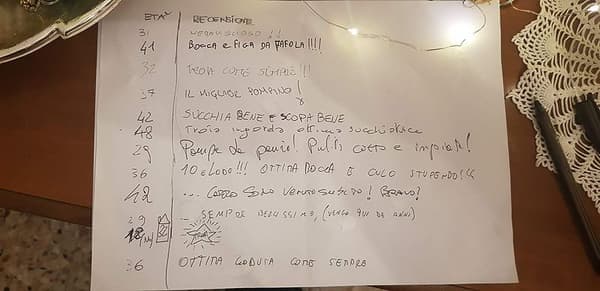 ETA' RECENSIONE
31
41 BOCCA E FIGA DA FAVOLA!!!!
32 TROIA COME SEMPRE!!!
37 IL MIGLIOR POMPINO!
42 SUCCHIA BENE E SCOPA BENE
48 Troia ingorda ottima succhiatrice
29 Pompe da paura!
36 10 e LODE!!! OTTIMA BOCCA E CULO STUPENDO!!!
42 ... CAZZO SONO VENUTO SUBITO! BRAVA!
29 SEMPRE BRAVISSIMA, (VENGO QUI DA ANNI)
36 OTTIMA GODUTA COME SEMPRE